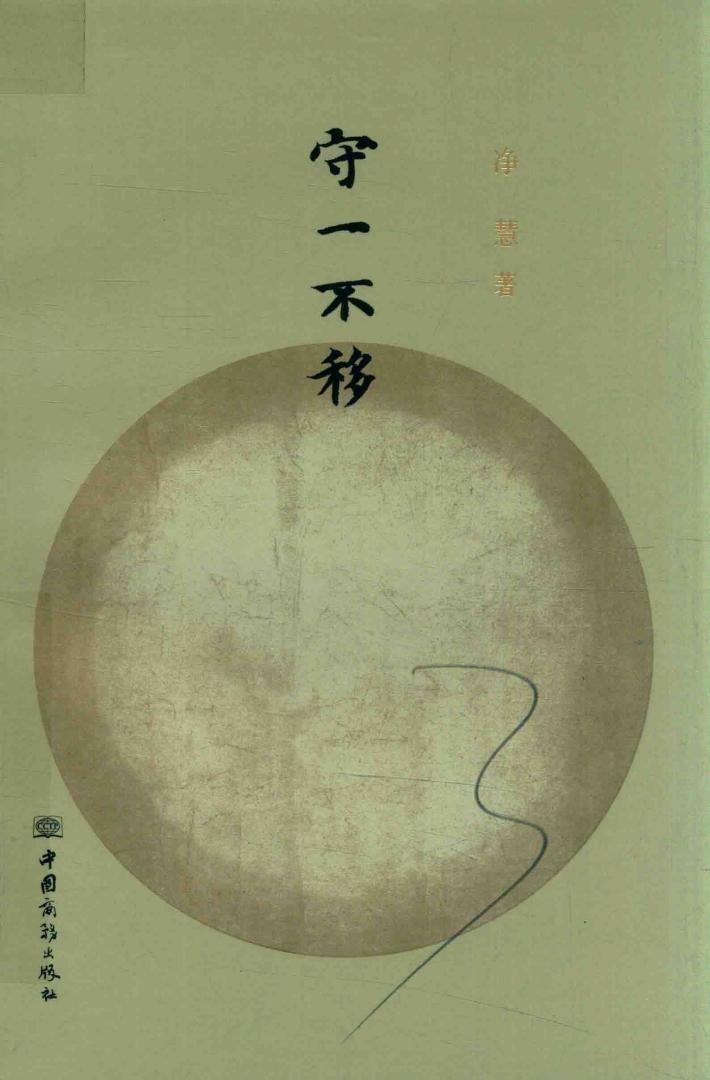 净慧著
守一不移
CCTP
中国商务出版社